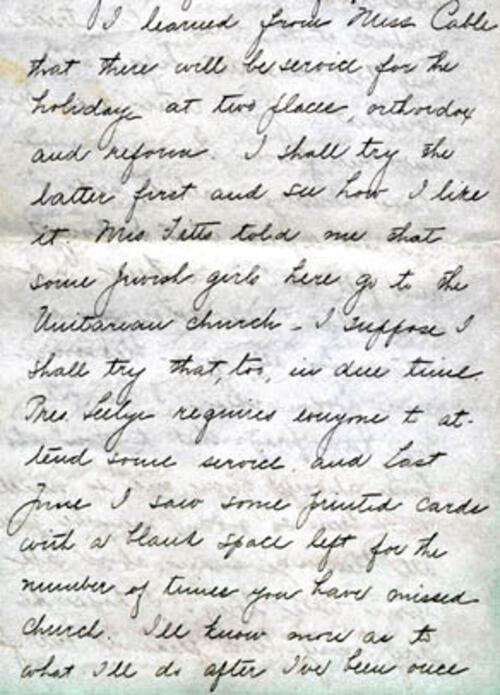 I learned from Miss Cable
that there will be service for the
holiday at two places, orthodox
and reform. I shall try the
latter first and see how I like
it. Mrs Fitts told me that
some Jewish girls here go to the
Unitarian church - I suppose I
shall try that, too, in due time.
Pres. Seelye requires everyone to at-
tend some service and last
June I saw some printed cards
with a blank space left for the
number of times you have missed
church. I'll know more as to
what I'll do after I've been once